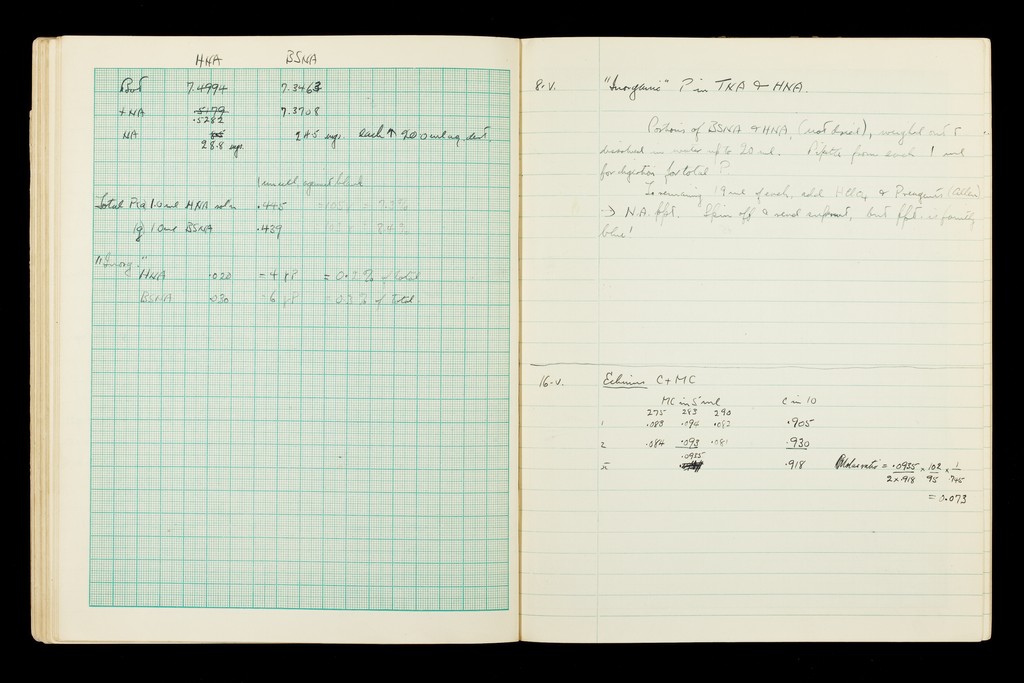 HNA BSNA
Boat 7.4994 7.3463
+NA .5179 7.3708
.5282
NA 24.5 mgs. each ↑ 20.0 ml aq. dest.
28.8 mgs.
1 in cell, against blank
Total P in 1.0 ml HNA soln .445
1.0 ml BSNA .439
"Inorg."
HNA .020 = 4 γP = 0.2% of total
BSNA .030 = 6 γP of total.
8.V. "Inorganic" P in TNA & HNA.
Portions of BSNA & HNA, (not dried), weighed out &
dissolved in water up to 20 ml. Pipette from each 1 ml
for digestion for total P.
To remaining 19 ml of each, add HClO4 & P reagents (Allen)
→ N.A. ppt. Spin off & read supernat., but ppt. is faintly
blue!
16.V. Echinus C+MC
MC in 5 ml C in 10
275 283 290
1 .083 .094 .082 .905
2 .084 .093 .081 .930
.0935
x̄ .918 Molar ratio = .0935/2×.918 × 102/95 × 1/.745
= 0.073